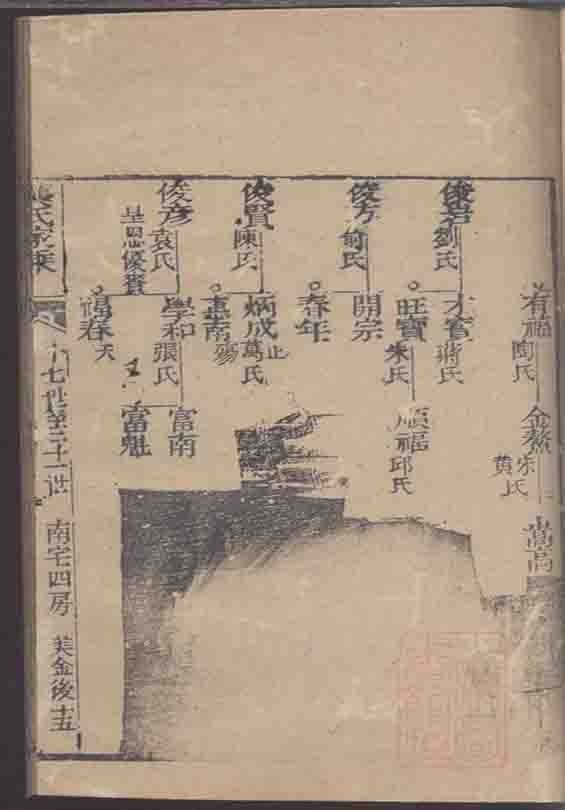 有福 陶氏
金鰲 宋氏 黄氏
嵩高
俊 劉氏
才實 蔣氏
旺寶 朱氏
順福 邱氏
俊芳 俞氏
開宗
春年
俊賢 陳氏
炳成 萬氏 止
惠南 殤
俊彦 袁氏
呈恩優貢
學和 張氏
富南
富魁
福春 夭
氏家乘
十七世至二十一世
南宅四房
美金後 十五